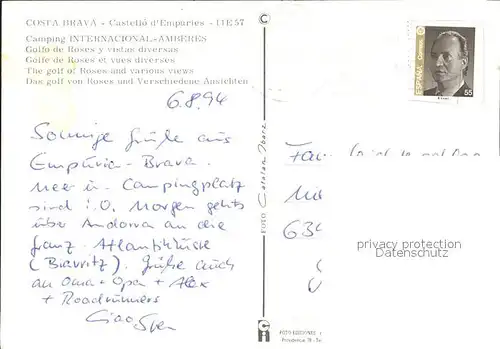 COSTA BRAVA - Castelló d'Empúries - IIE57
Camping INTERNACIONAL-AMBERES
Golfo de Roses y vistas diversas
Golfe de Roses et vues diverses
The golf of Roses and various views
Das golf von Roses und Verschiedene Ansichten
6.8.94
Sonnige Grüße aus
Empúria-Brava.
Meer u. Campingplatz
sind i.O. Morgen gehts
über Andorra an die
franz. Atlantikküste
(Biarritz). Grüße auch
an Oma + Opa + Alex
+ Roadrunners
Ciao Sven
FOTO Catalan Ibarz
ESPAÑA Correos
55
Fam.
634
privacy protection
Datenschutz